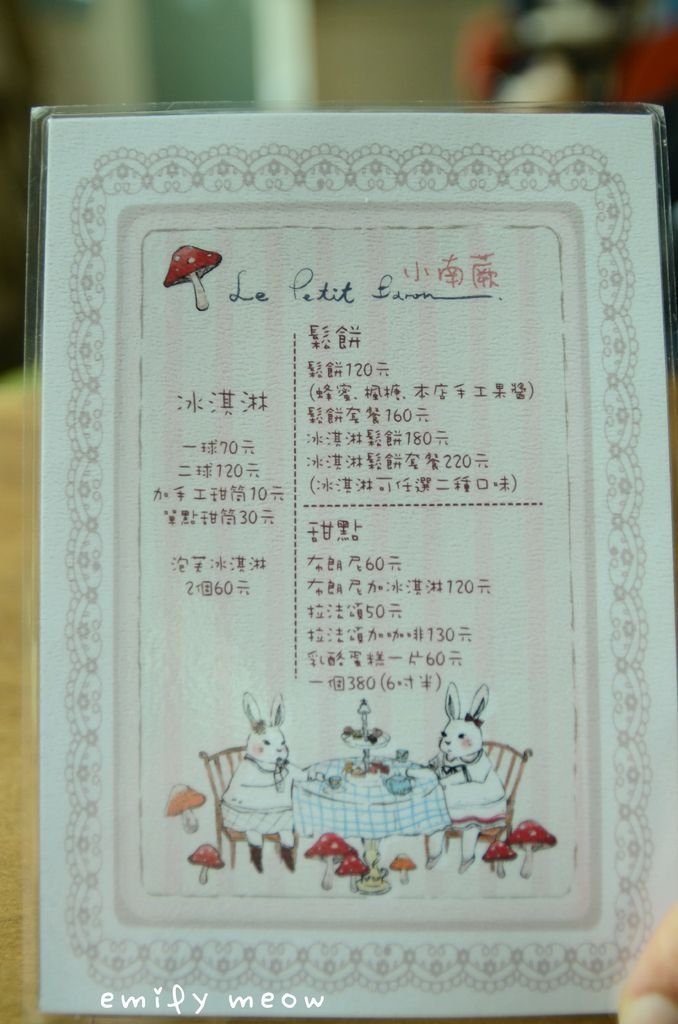 小南蕨
Le Petit Baron
冰淇淋
一球70元
二球120元
加手工甜筒10元
單點甜筒30元
泡芙冰淇淋
2個60元
鬆餅
鬆餅120元
(蜂蜜、楓糖、本店手工果醬)
鬆餅套餐160元
冰淇淋鬆餅180元
冰淇淋鬆餅套餐220元
(冰淇淋可任選二種口味)
甜點
布朗尼60元
布朗尼加冰淇淋120元
拉法頌50元
拉法頌加咖啡130元
乳酪蛋糕一片60元
一個380(6吋半)
emify meow